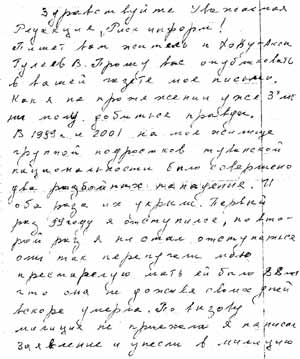 Здравствуйте Уважаемая
Редакция, Риск информ!
Пишет вам житель п Хову-Аксы
Гулеев В. Прошу вас опубликовать
в вашей газете мое письмо.
Как я на протяжении уже 3х лет
ни могу добиться правды.
В 1999г и 2001 на мое жилище
группой подростков тувинской
национальности было совершено
два разбойных нападения. И
оба раза их укрыли. Первый
раз 99 году я отступился, но вто-
рой раз я ни стал отступаться
они так перепугали мою
престарелую мать ей было
что она не дожив своих дней
вскоре умерла. По вызову
милиция не приехала я написал
Заявление и унесли в милицию